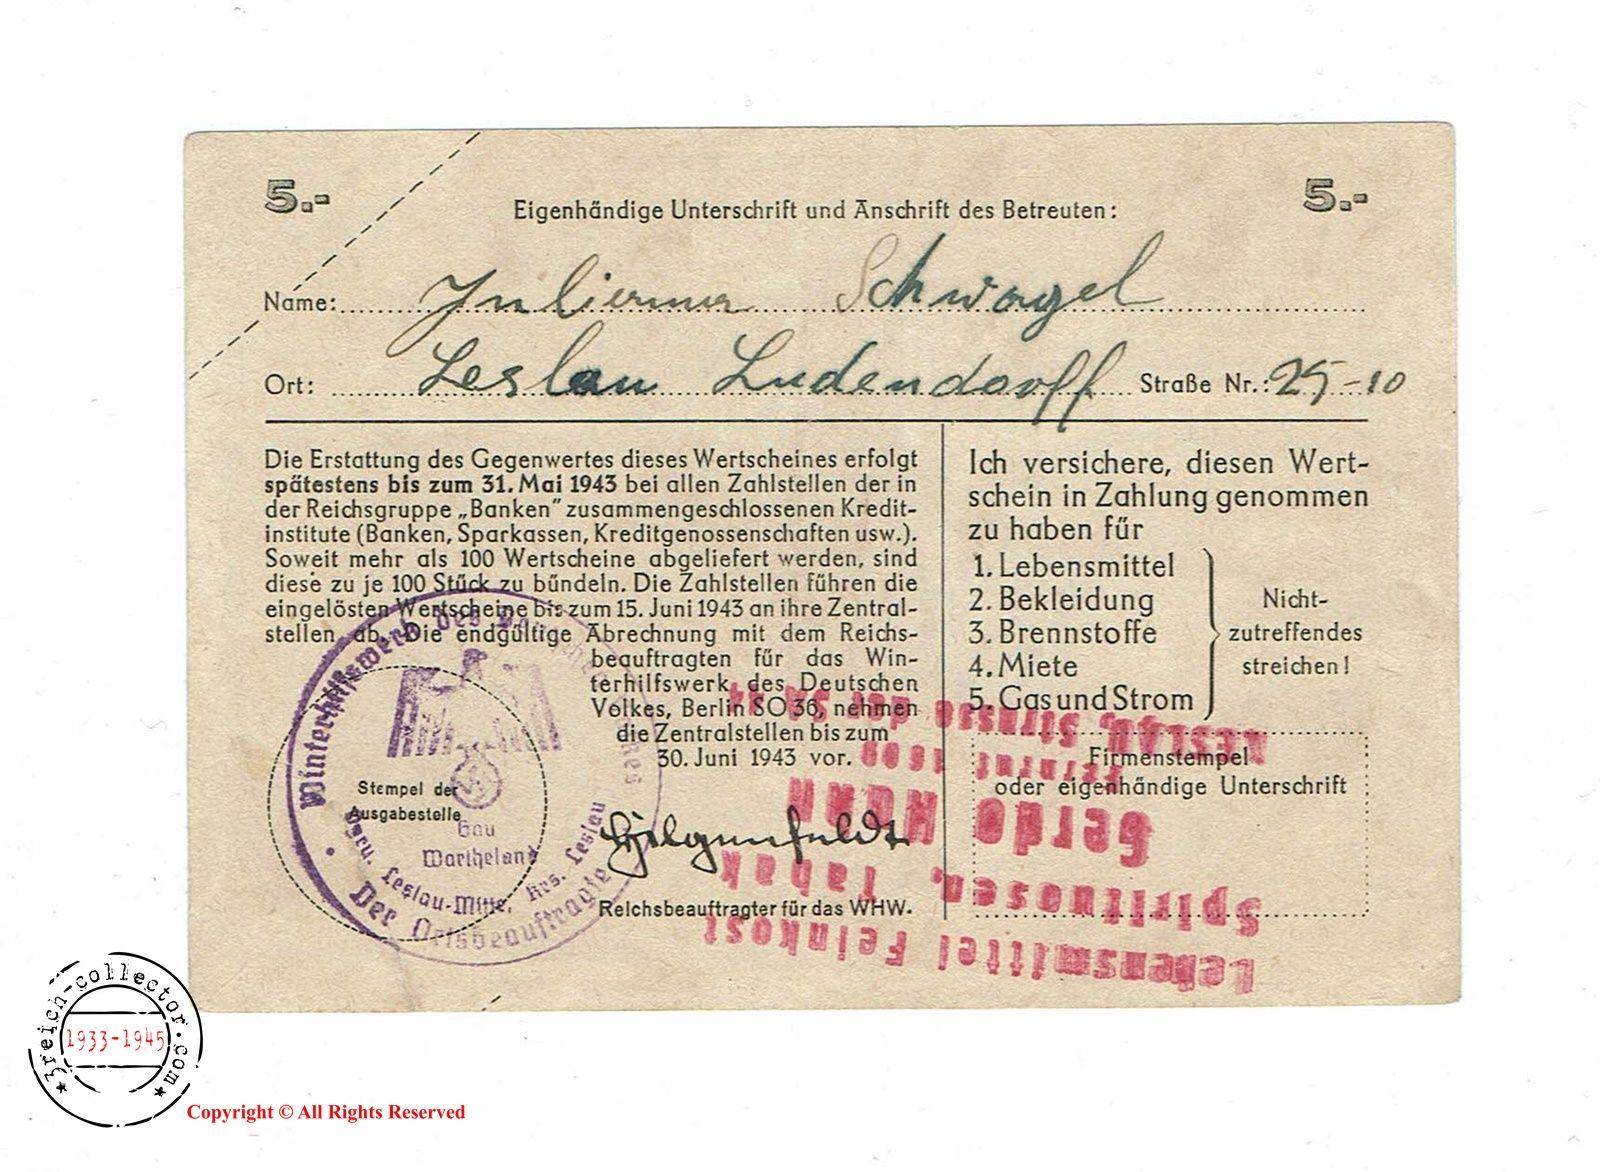 5.- 5.-
Eigenhändige Unterschrift und Anschrift des Betreuten:
Name: Schwagel
Ort: Leslau Ludendorff Straße Nr.: 25-10
Die Erstattung des Gegenwertes dieses Wertscheines erfolgt
spätestens bis zum 31. Mai 1943 bei allen Zahlstellen der in
der Reichsgruppe „Banken" zusammengeschlossenen Kredit-
institute (Banken, Sparkassen, Kreditgenossenschaften usw.).
Soweit mehr als 100 Wertscheine abgeliefert werden, sind
diese zu je 100 Stück zu bündeln. Die Zahlstellen führen die
eingelösten Wertscheine bis zum 15. Juni 1943 an ihre Zentral-
stellen ab. Die endgültige Abrechnung mit dem Reichs-
beauftragten für das Win-
terhilfswerk des Deutschen
Volkes, Berlin SO 36, nehmen
die Zentralstellen bis zum
30. Juni 1943 vor.
Hilgenfeldt
Reichsbeauftragter für das WHW.
Ich versichere, diesen Wert-
schein in Zahlung genommen
zu haben für
1. Lebensmittel
2. Bekleidung
3. Brennstoffe
4. Miete
5. Gas und Strom
Nicht-
zutreffendes
streichen!
Firmenstempel
oder eigenhändige Unterschrift
Stempel der
Ausgabestelle
Winterhilfswerk des Deutschen
Gau
Wartheland
Leslau-Mitte, Krs. Leslau
Der Ortsbeauftragte
Lebensmittel Feinkost
Spirituosen, Tabak
Gerda
Feinruf 1609
LESLAU, Strasse der SA
3reich-collector.com
1933-1945
Copyright © All Rights Reserved